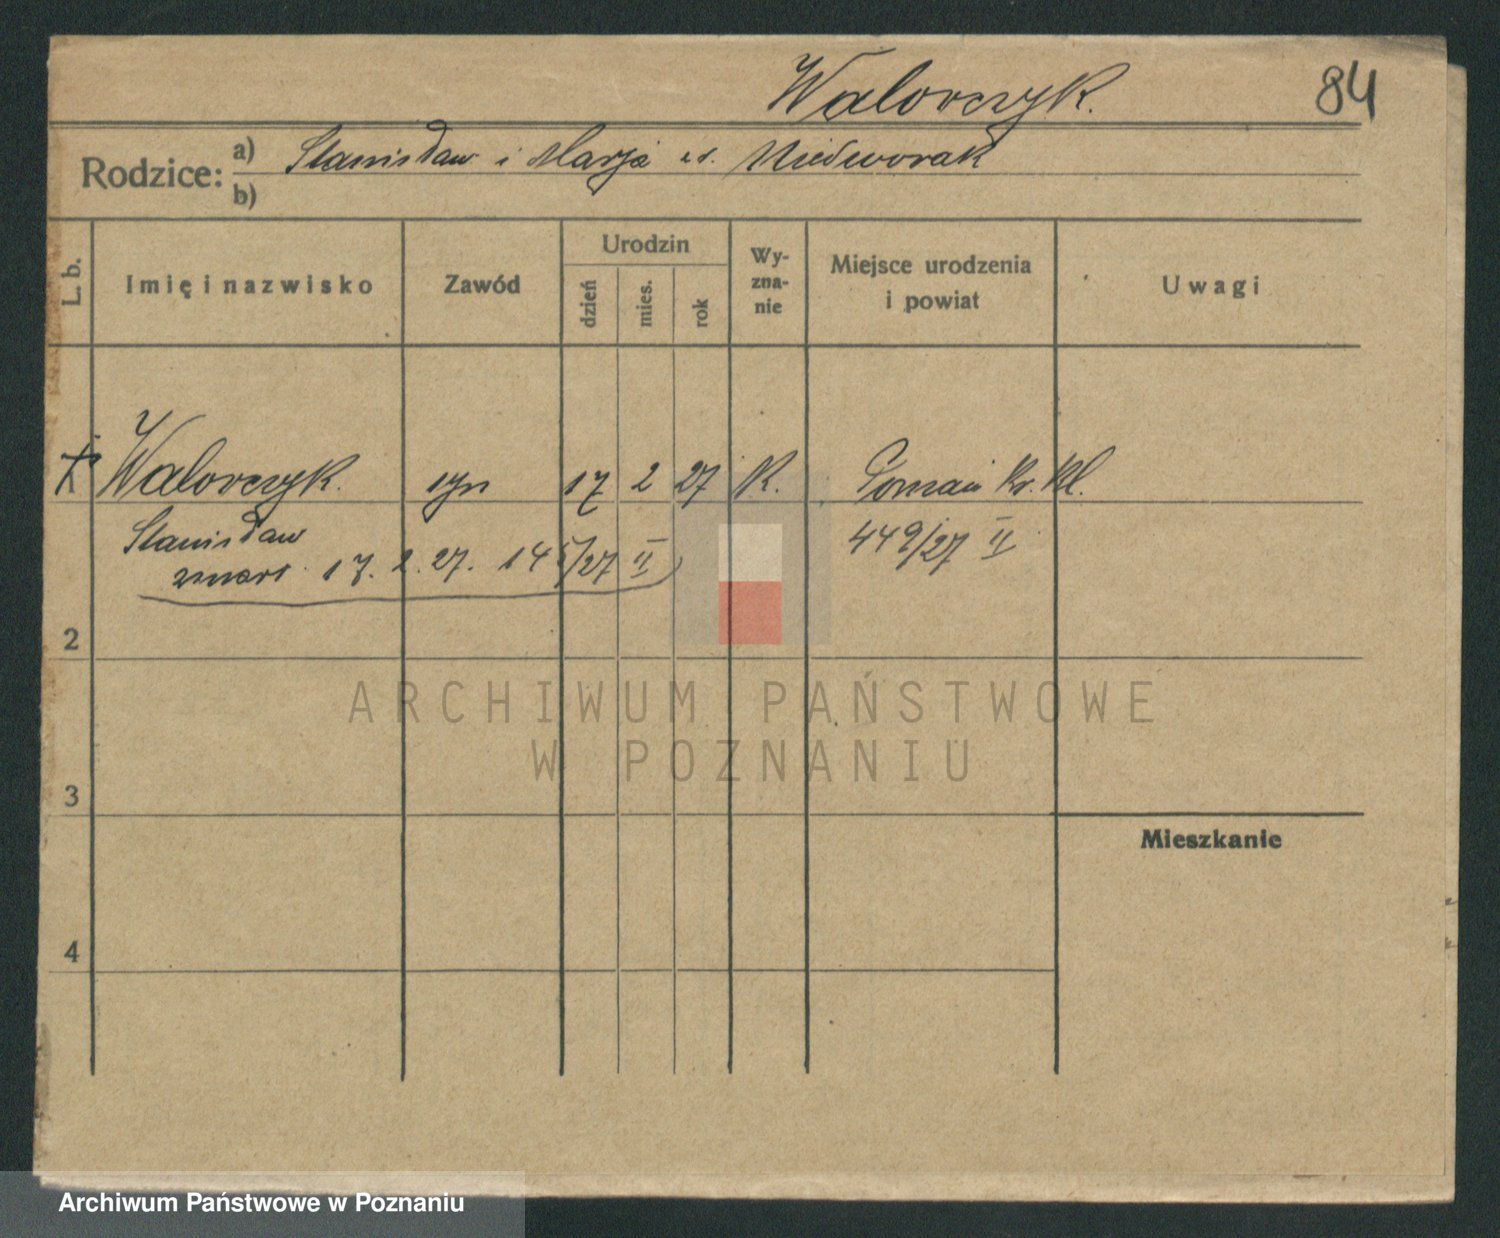 Walorczyk.
84
Rodzice:
a) Stanisław i Marja
b)
L. b.
Imię i nazwisko
Zawód
Urodzin
dzień
mies.
rok
Wy-
zna-
nie
Miejsce urodzenia
i powiat
Uwagi
Walorczyk. syn 17 2 27 K. Poznań
Stanisław
449/27 II
zmarł 17. 2. 27. /27 II
2
3
4
Mieszkanie
ARCHIWUM PAŃSTWOWE
W POZNANIU
Archiwum Państwowe w Poznaniu